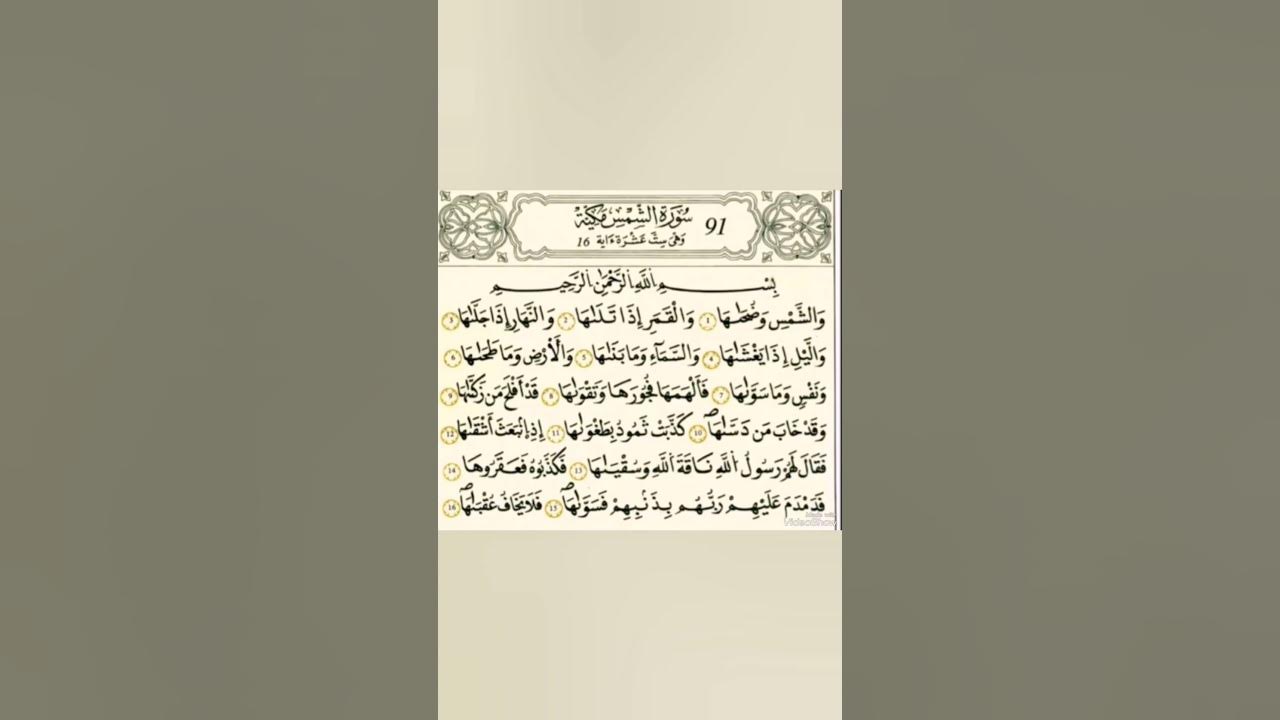 سُورَةُ الشَّمْسِ مَكِّيَّةٌ 91
وَهْىَ سِتَّ عَشْرَةَ ءَايَة 16
بِسْمِ اِ۬للَّهِ اِ۬لرَّحْمَٰنِ اِ۬لرَّحِيمِ
وَالشَّمْسِ وَضُحَىٰهَا 1 وَالْقَمَرِ إِذَا تَلَىٰهَا 2 وَالنَّهَارِ إِذَا جَلَّىٰهَا 3
وَالَّيْلِ إِذَا يَغْشَىٰهَا 4 وَالسَّمَآءِ وَمَا بَنَىٰهَا 5 وَالْأَرْضِ وَمَا طَحَىٰهَا 6
وَنَفْسٍ وَمَا سَوَّىٰهَا 7 فَأَلْهَمَهَا فُجُورَهَا وَتَقْوَىٰهَا 8 قَدْ أَفْلَحَ مَن زَكَّىٰهَا 9
وَقَدْ خَابَ مَن دَسَّىٰهَا 10 كَذَّبَتْ ثَمُودُ بِطَغْوَىٰهَا 11 إِذِ اِ۪نۢبَعَثَ أَشْقَىٰهَا 12
فَقَالَ لَهُمْ رَسُولُ اُ۬للَّهِ نَاقَةَ اَ۬للَّهِ وَسُقْيَٰهَا 13 فَكَذَّبُوهُ فَعَقَرُوهَا 14
فَدَمْدَمَ عَلَيْهِمْ رَبُّهُم بِذَنۢبِهِمْ فَسَوَّىٰهَا 15 فَلَا يَخَافُ عُقْبَىٰهَا 16
Made with
VideoShow